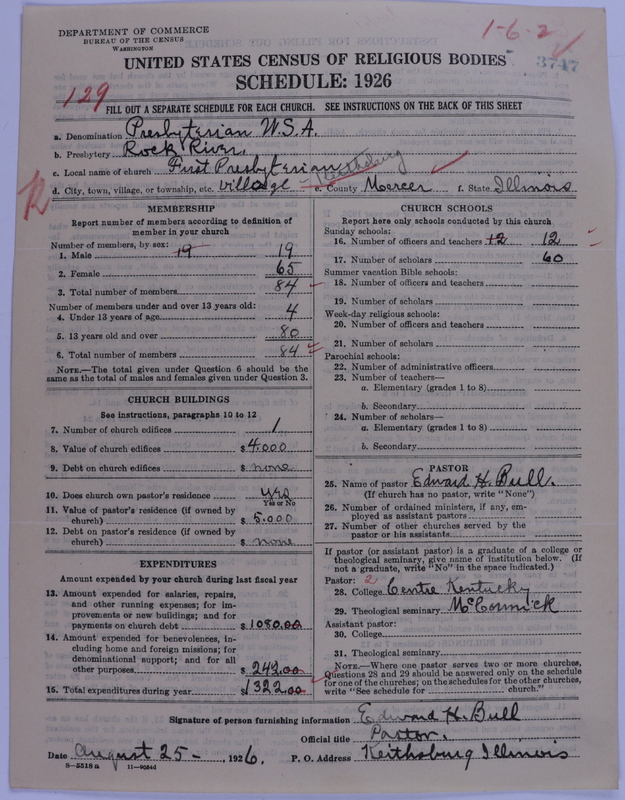 DEPARTMENT OF COMMERCE
BUREAU OF THE CENSUS
WASHINGTON
1-6-2
UNITED STATES CENSUS OF RELIGIOUS BODIES
3747
SCHEDULE: 1926
129
FILL OUT A SEPARATE SCHEDULE FOR EACH CHURCH. SEE INSTRUCTIONS ON THE BACK OF THIS SHEET
a. Denomination Presbyterian U.S.A.
b. Presbytery Rock River.
c. Local name of church First Presbyterian Keithsburg
d. City, town, village, or township, etc. village e. County Mercer f. State Illinois
MEMBERSHIP
Report number of members according to definition of
member in your church
Number of members, by sex:
1. Male 19 19
2. Female 65
3. Total number of members 84
Number of members under and over 13 years old:
4. Under 13 years of age 4
5. 13 years old and over 80
6. Total number of members 84
NOTE.—The total given under Question 6 should be
same as the total of males and females given under Question 3.
CHURCH BUILDINGS
See instructions, paragraphs 10 to 12
7. Number of church edifices 1
8. Value of church edifices $ 4.000
9. Debt on church edifices $ none
10. Does church own pastor's residence yes
Yes or No
11. Value of pastor's residence (if owned by
church) $ 5.000
12. Debt on pastor's residence (if owned by
church) $ none
EXPENDITURES
Amount expended by your church during last fiscal year
13. Amount expended for salaries, repairs,
and other running expenses; for im-
provements or new buildings; and for
payments on church debt $ 1080.00
14. Amount expended for benevolences, in-
cluding home and foreign missions; for
denominational support; and for all
other purposes $ 242.00
15. Total expenditures during year $ 1322.00
CHURCH SCHOOLS
Report here only schools conducted by this church
Sunday schools:
16. Number of officers and teachers 12 12
17. Number of scholars 60
Summer vacation Bible schools:
18. Number of officers and teachers
19. Number of scholars
Week-day religious schools:
20. Number of officers and teachers
21. Number of scholars
Parochial schools:
22. Number of administrative officers
23. Number of teachers—
a. Elementary (grades 1 to 8)
b. Secondary
24. Number of scholars—
a. Elementary (grades 1 to 8)
b. Secondary
PASTOR
25. Name of pastor Edward H. Bull.
(If church has no pastor, write "None")
26. Number of ordained ministers, if any, em-
ployed as assistant pastors
27. Number of other churches served by the
pastor or his assistants
If pastor (or assistant pastor) is a graduate of a college or
theological seminary, give name of institution below. (If
not a graduate, write "No" in the space indicated.)
Pastor: 2
28. College Centre Kentucky
29. Theological seminary McCormick
Assistant pastor:
30. College
31. Theological seminary
NOTE.—Where one pastor serves two or more churches,
Questions 28 and 29 should be answered only on the schedule
for one of the churches; on the schedules for the other churches,
write "See schedule for church."
Signature of person furnishing information Edward H. Bull
Official title Pastor.
Date August 25 - , 1926. P. O. Address Keithsburg Illinois
S—5518a 11—9054d